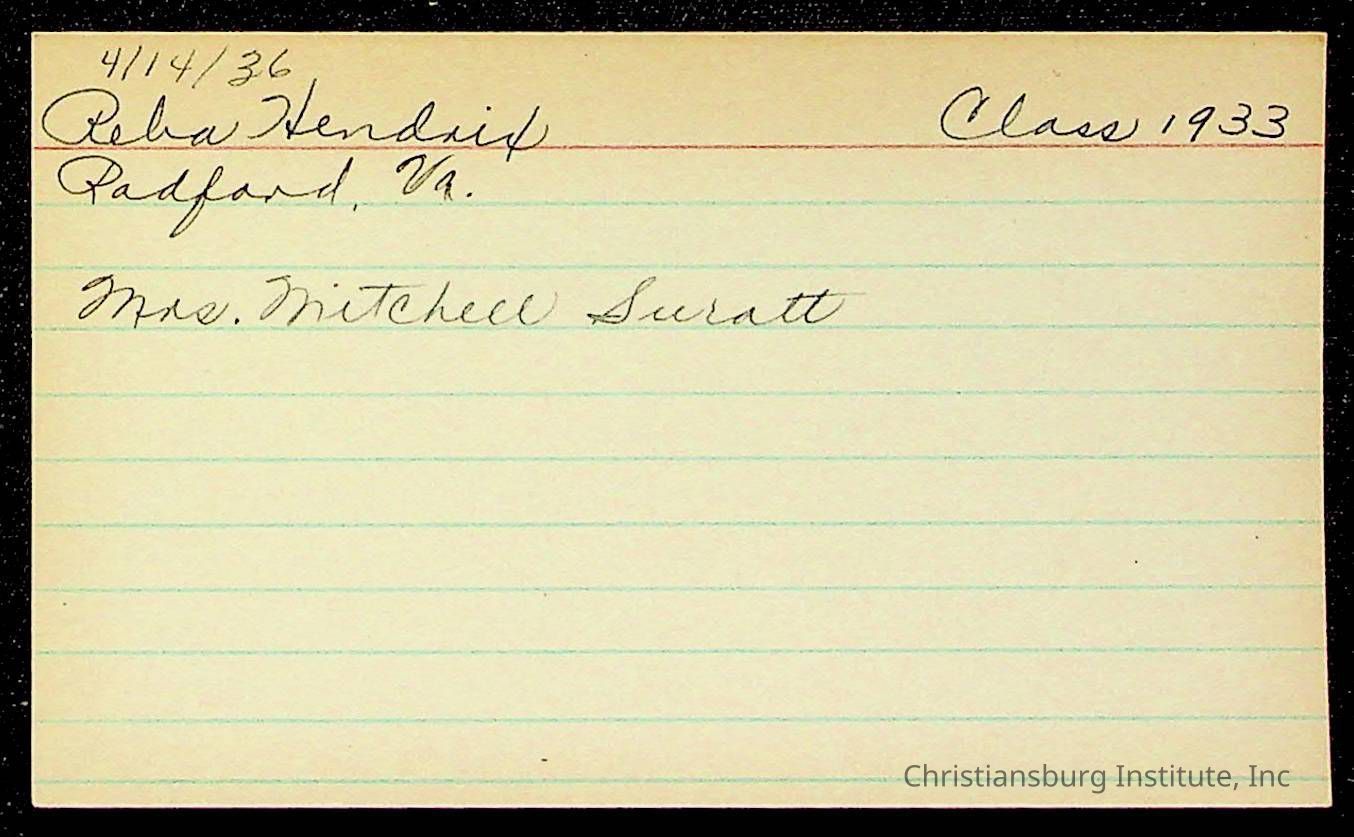 4/14/36
Reba Hendrix Class 1933
Radford, Va.
Mrs. Mitchell Suratt
Christiansburg Institute, Inc